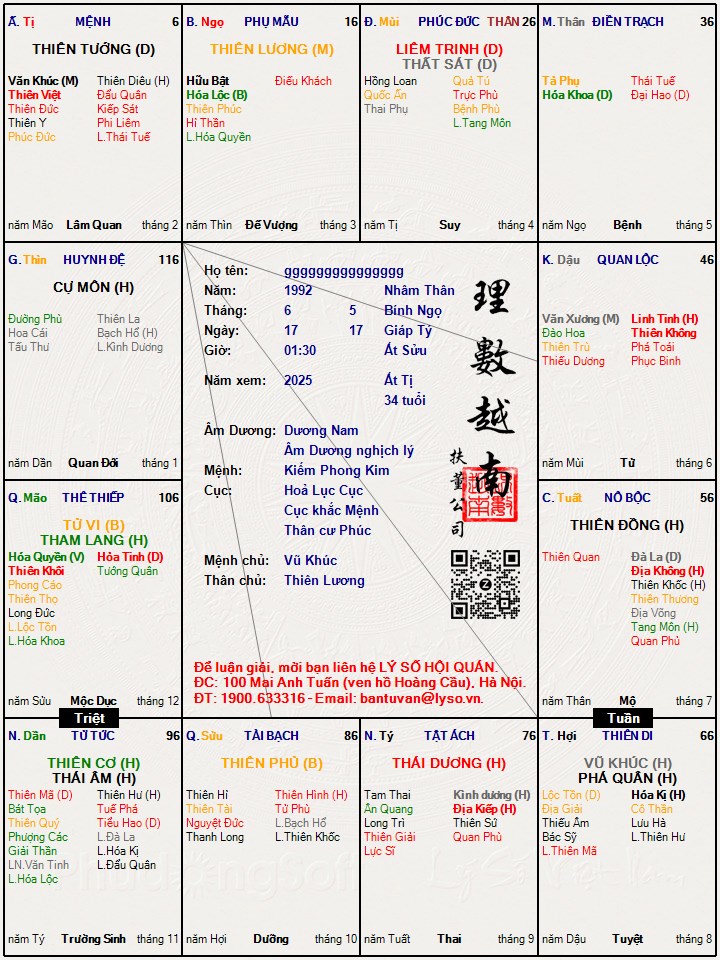 Ấ. Tị MỆNH 6
THIÊN TƯỚNG (D)
Văn Khúc (M) Thiên Diêu (H)
Thiên Việt Đẩu Quân
Thiên Đức Kiếp Sát
Thiên Y Phi Liêm
Phúc Đức L.Thái Tuế
năm Mão Lâm Quan tháng 2
B. Ngọ PHỤ MẪU 16
THIÊN LƯƠNG (M)
Hữu Bật Điếu Khách
Hóa Lộc (B)
Thiên Phúc
Hỉ Thần
L.Hóa Quyền
năm Thìn Đế Vượng tháng 3
Đ. Mùi PHÚC ĐỨC THÂN 26
LIÊM TRINH (D)
THẤT SÁT (D)
Hồng Loan Quả Tú
Quốc Ấn Trực Phù
Thai Phụ Bệnh Phù
L.Tang Môn
năm Tị Suy tháng 4
M. Thân ĐIỀN TRẠCH 36
Tả Phụ Thái Tuế
Hóa Khoa (D) Đại Hao (D)
năm Ngọ Bệnh tháng 5
G. Thìn HUYNH ĐỆ 116
CỰ MÔN (H)
Đường Phù Thiên La
Hoa Cái Bạch Hổ (H)
Tấu Thư L.Kình Dương
năm Dần Quan Đới tháng 1
Họ tên: ggggggggggggggg
Năm: 1992 Nhâm Thân
Tháng: 6 5 Bính Ngọ
Ngày: 17 17 Giáp Tý
Giờ: 01:30 Ất Sửu
Năm xem: 2025 Ất Tị
34 tuổi
Âm Dương: Dương Nam
Âm Dương nghịch lý
Mệnh: Kiếm Phong Kim
Cục: Hoả Lục Cục
Cục khắc Mệnh
Thân cư Phúc
Mệnh chủ: Vũ Khúc
Thân chủ: Thiên Lương
理數越南
扶董公司
Để luận giải, mời bạn liên hệ LÝ SỐ HỘI QUÁN.
ĐC: 100 Mai Anh Tuấn (ven hồ Hoàng Cầu), Hà Nội.
ĐT: 1900.633316 - Email: bantuvan@lyso.vn.
K. Dậu QUAN LỘC 46
Văn Xương (M) Linh Tinh (H)
Đào Hoa Thiên Không
Thiên Trù Phá Toái
Thiếu Dương Phục Binh
năm Mùi Tử tháng 6
Q. Mão THÊ THIẾP 106
TỬ VI (B)
THAM LANG (H)
Hóa Quyền (V) Hỏa Tinh (D)
Thiên Khôi Tướng Quân
Phong Cáo
Thiên Thọ
Long Đức
L.Lộc Tồn
L.Hóa Khoa
năm Sửu Mộc Dục tháng 12
Triệt
C. Tuất NÔ BỘC 56
THIÊN ĐỒNG (H)
Thiên Quan Đà La (D)
Địa Không (H)
Thiên Khốc (H)
Thiên Thương
Địa Võng
Tang Môn (H)
Quan Phủ
năm Thân Mộ tháng 7
Tuần
N. Dần TỬ TỨC 96
THIÊN CƠ (H)
THÁI ÂM (H)
Thiên Mã (D) Thiên Hư (H)
Bát Tọa Tuế Phá
Thiên Quý Tiểu Hao (D)
Phượng Các L.Đà La
Giải Thần L.Hóa Kị
LN.Văn Tinh L.Đẩu Quân
L.Hóa Lộc
năm Tý Trường Sinh tháng 11
Q. Sửu TÀI BẠCH 86
THIÊN PHỦ (B)
Thiên Hỉ Thiên Hình (H)
Thiên Tài Tử Phù
Nguyệt Đức L.Bạch Hổ
Thanh Long L.Thiên Khốc
năm Hợi Dưỡng tháng 10
N. Tý TẬT ÁCH 76
THÁI DƯƠNG (H)
Tam Thai Kình dương (H)
Ân Quang Địa Kiếp (H)
Long Trì Thiên Sứ
Thiên Giải Quan Phù
Lực Sĩ
năm Tuất Thai tháng 9
T. Hợi THIÊN DI 66
VŨ KHÚC (H)
PHÁ QUÂN (H)
Lộc Tồn (D) Hóa Kị (H)
Địa Giải Cô Thần
Thiếu Âm Lưu Hà
Bác Sỹ L.Thiên Hư
L.Thiên Mã
năm Dậu Tuyệt tháng 8